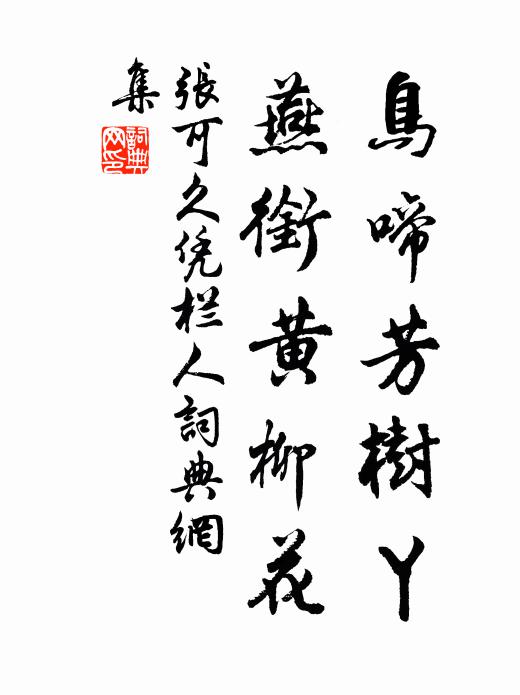 鳥啼芳樹丫
燕銜黃柳花
張可久凭栏人詞典網
集
詞典網印